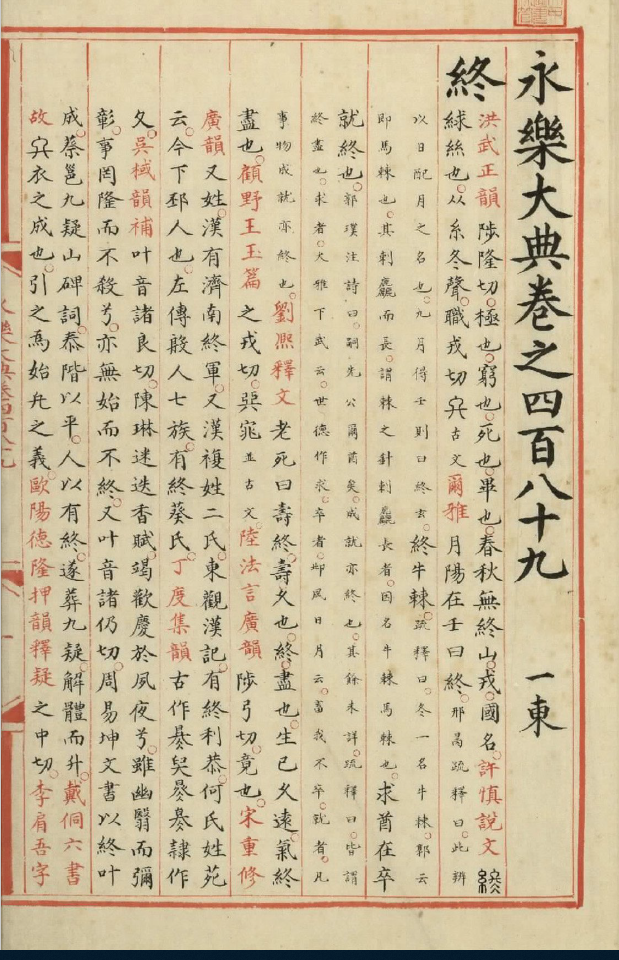 永樂大典卷之四百八十九 一東
終 洪武正韻陟隆切極也窮也死也畢也春秋無終山戎國名許慎說文
絿絲也从糸冬聲職戎切古文爾雅月陽在壬曰終邢昺疏釋曰此辨
以日配月之名也九月得壬則曰終玄終牛棘疏釋曰冬一名牛棘郭云
即馬棘也其刺麤而長謂棘之針刺麤長者因名牛棘馬棘也求酋在卒
就終也郭璞注詩曰嗣先公爾酋矣成就亦終也其餘未詳疏釋曰皆謂
終盡也求者大雅下武云世德作求卒者邶風日月云畜我不卒就者凡
事物成就亦終也劉熙釋文老死曰壽終壽久也終盡也生已久遠氣終
盡也顧野王玉篇之戎切並古文陸法言廣韻陟弓切竟也宋重修
廣韻又姓漢有濟南終軍又漢複姓二氏東觀漢記有終利恭何氏姓苑
云今下邳人也左傳殷人七族有終葵氏丁度集韻古作隸作
夂吳棫韻補叶音諸良切陳琳迷迭香賦竭歡慶於夙夜兮雖幽翳而彌
彰事罔隆而不殺兮亦無始而不終又叶音諸仍切周易坤文書以終叶
成蔡邕九疑山碑詞泰階以平人以有終遂葬九疑解體而升戴侗六書
故衣之成也引之爲始九之義歐陽德隆押韻釋疑之中切李肩吾字